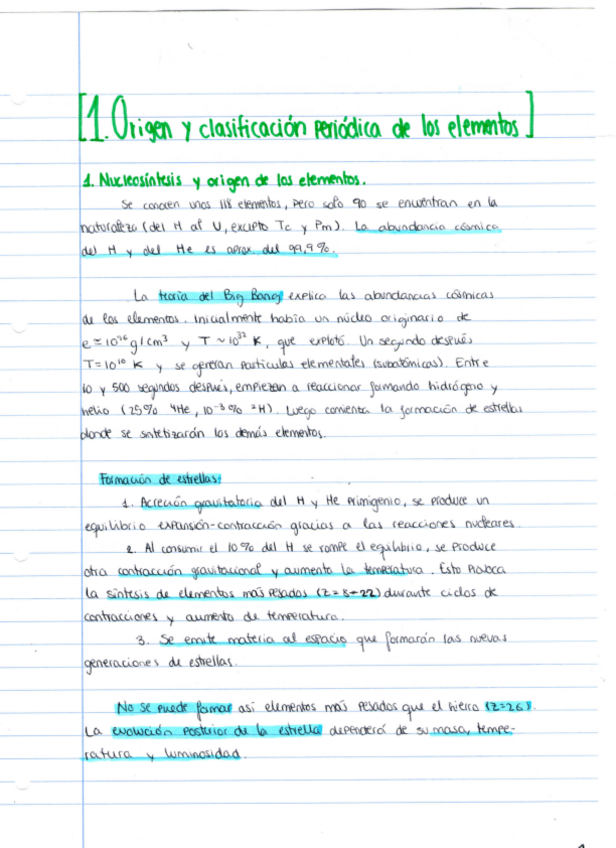 [1. Origen y clasificación periódica de los elementos]
1. Nucleosíntesis y origen de los elementos.
Se conocen unos 118 elementos, pero solo 90 se encuentran en la
naturaleza (del H al U, excepto Tc y Pm). La abundancia cósmica
del H y del He es aprox. del 99,9%.
La teoría del Big Bang explica las abundancias cósmicas
de los elementos. Inicialmente había un núcleo originario de
e ≈ 10⁹⁶ g/cm³ y T ~ 10³² K, que explotó. Un segundo después
T = 10¹⁰ K y se generan partículas elementales (subatómicas). Entre
10 y 500 segundos después, empiezan a reaccionar formando hidrógeno y
helio (25% ⁴He, 10⁻³% ²H). Luego comienza la formación de estrellas
donde se sintetizarán los demás elementos.
Formación de estrellas:
1. Acreción gravitatoria del H y He primigenio, se produce un
equilibrio expansión-contracción gracias a las reacciones nucleares.
2. Al consumir el 10% del H se rompe el equilibrio, se produce
otra contracción gravitacional y aumenta la temperatura. Esto provoca
la síntesis de elementos más pesados (Z=8-22) durante ciclos de
contracciones y aumento de temperatura.
3. Se emite materia al espacio que formarán las nuevas
generaciones de estrellas.
No se puede formar así elementos más pesados que el hierro (Z=26).
La evolución posterior de la estrella dependerá de su masa, tempe-
ratura y luminosidad.